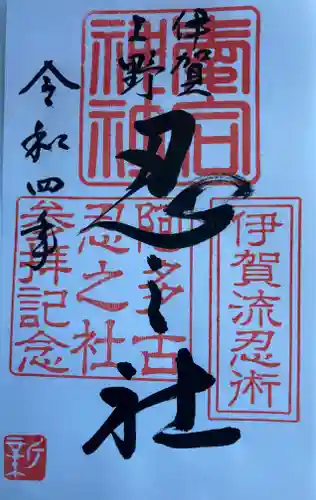 伊賀
上野
忍之社
令和四年
愛宕
神社
伊賀流忍術
阿多古
忍之社
參拝記念